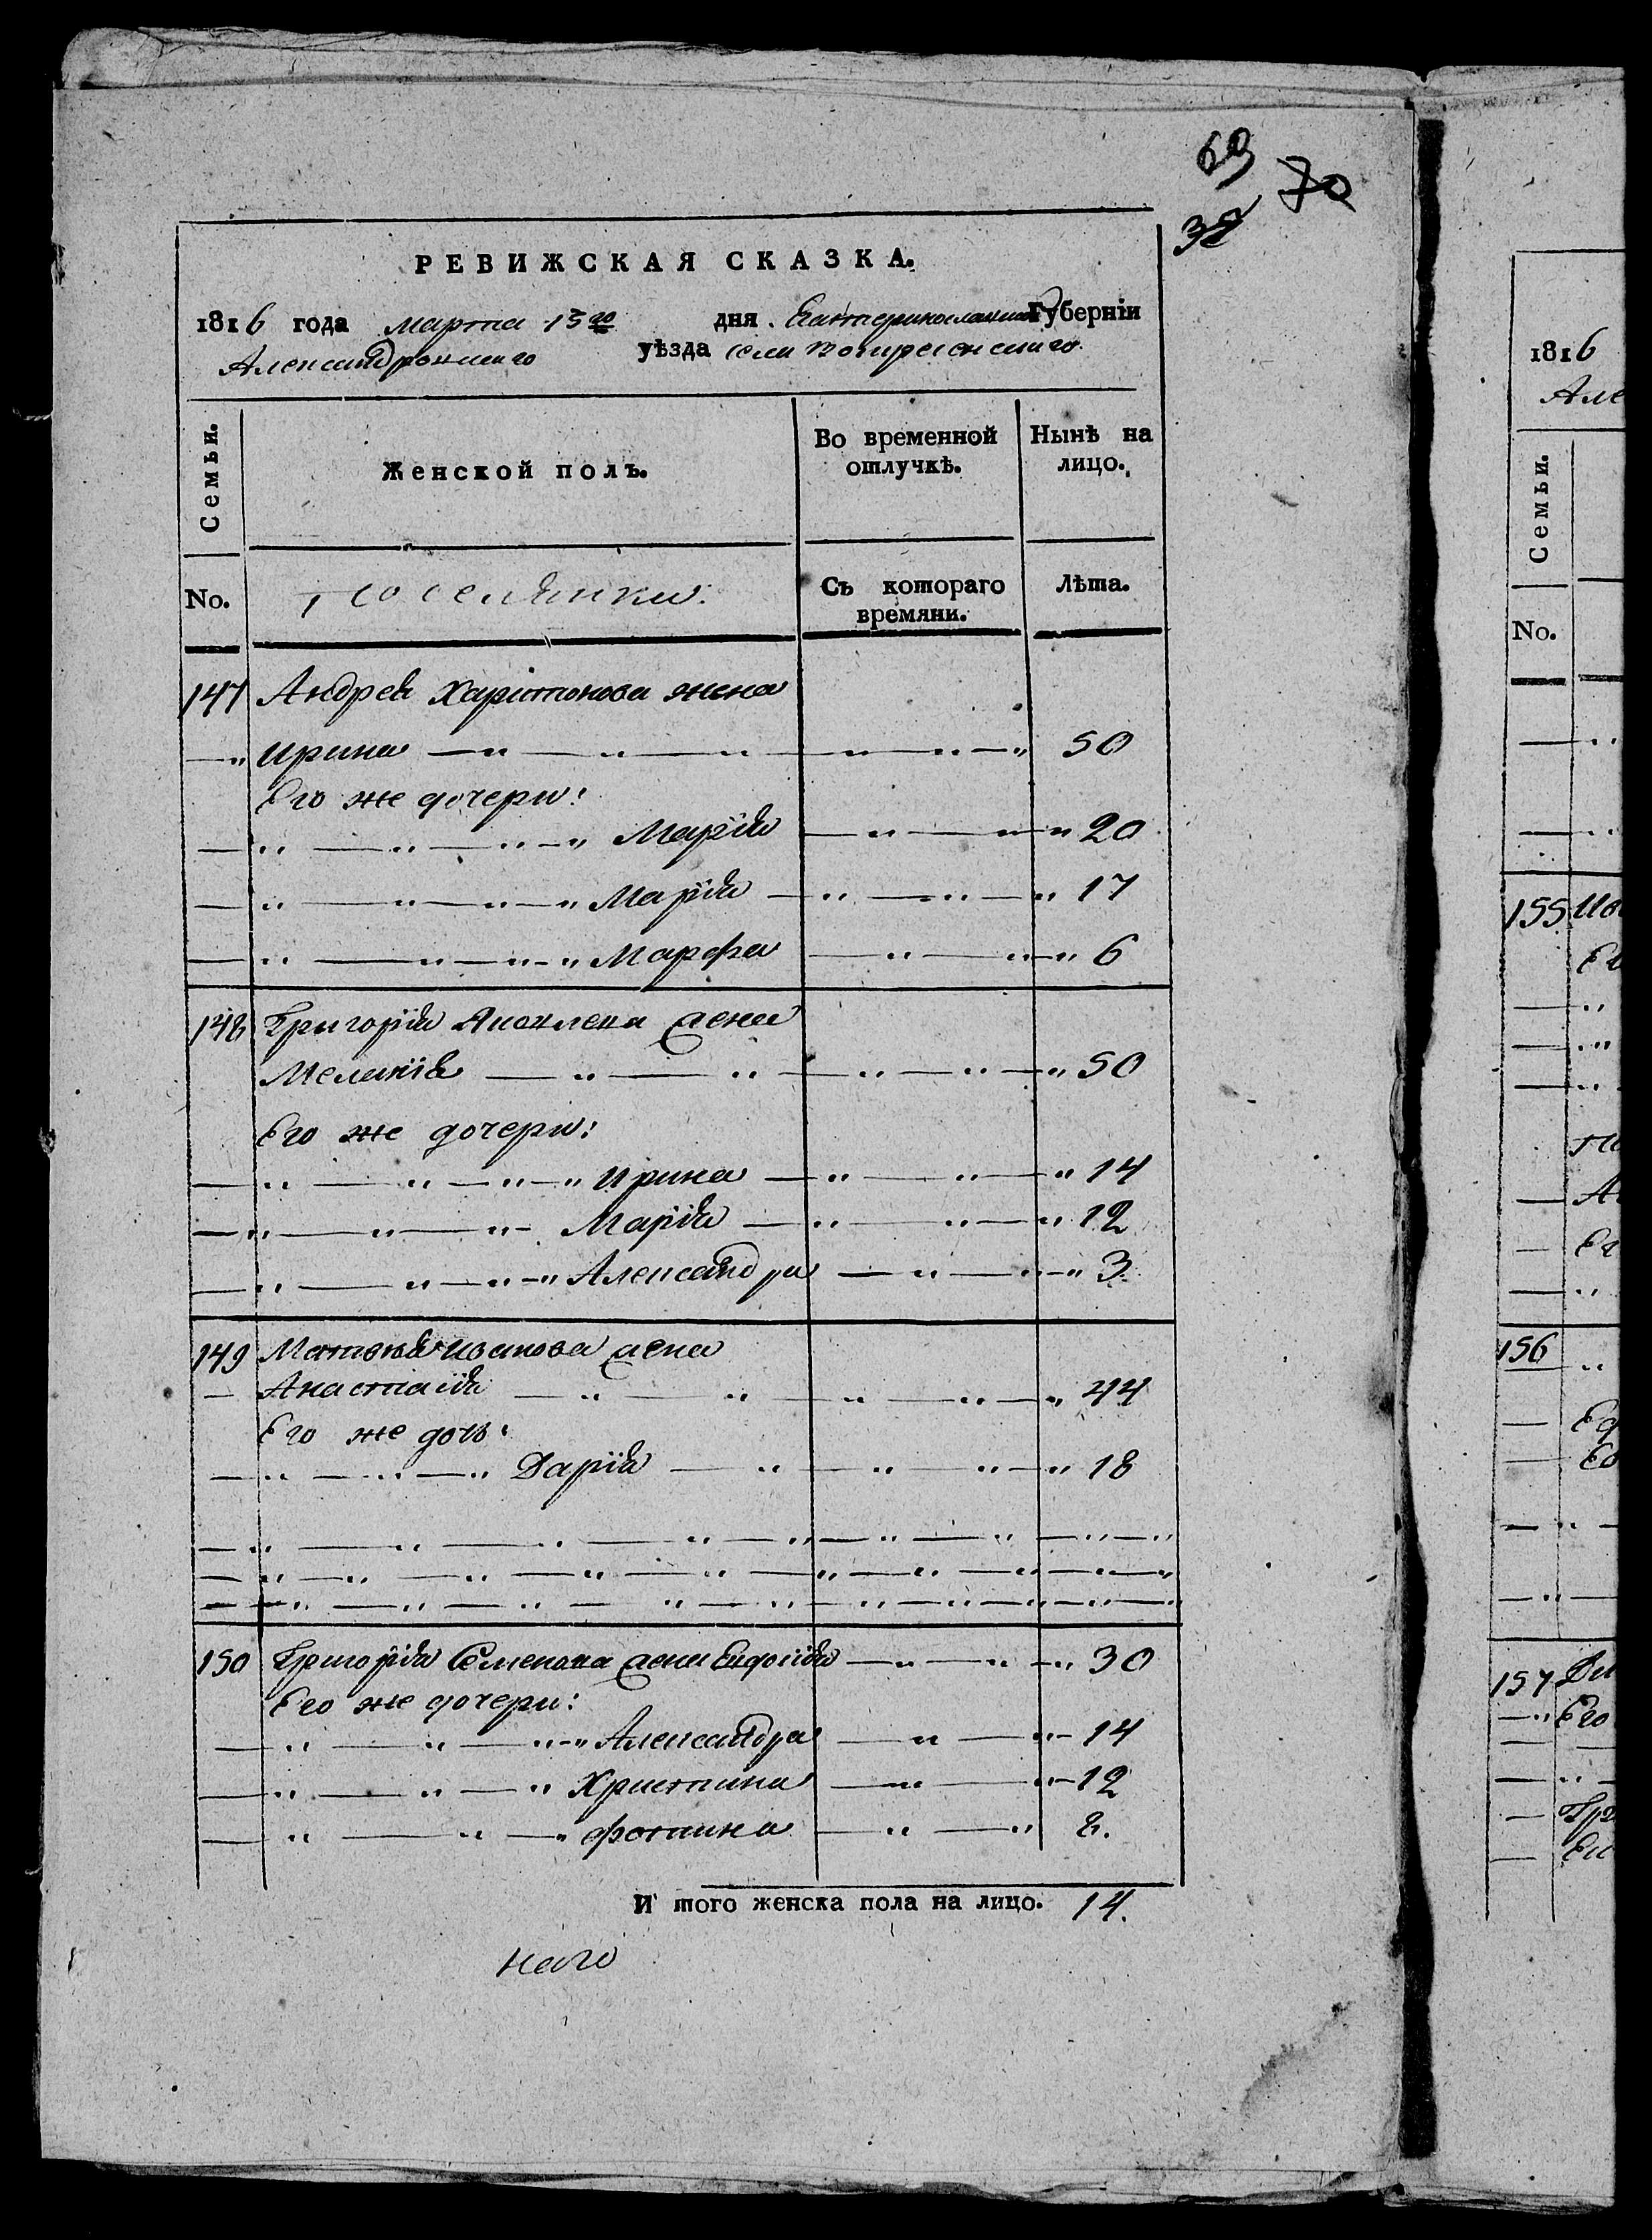 69
70
РЕВИЖСКАЯ СКАЗКА.
1816 года марта 15го дня. Екатеринославской Губернiи
Александровскаго уѣзда села Воскресенскаго
Семьи.
Женской полъ.
Во временной отлучкѣ.
Нынѣ на лицо.
No.
Поселянки.
Съ котораго времяни.
Лѣта.
147 Андрея Харiтонова жена
Ирина 50
Его же дочери:
Марiя 20
Марiя 17
Марфа 6
148 Григорiя Яковлева жена
Меланiя 50
Его же дочери:
Ирина 14
Марiя 12
Александра 3
149 Матвѣя Иванова жена
Анастасiя 44
Его же дочь:
Дарiя 18
150 Григорiя Семенова жена Евдокiя 30
Его же дочери:
Александра 14
Христина 12
Фотина 8.
И того женска пола на лицо. 14.
1816
Але
Семьи.
No.
155
156
157
Его